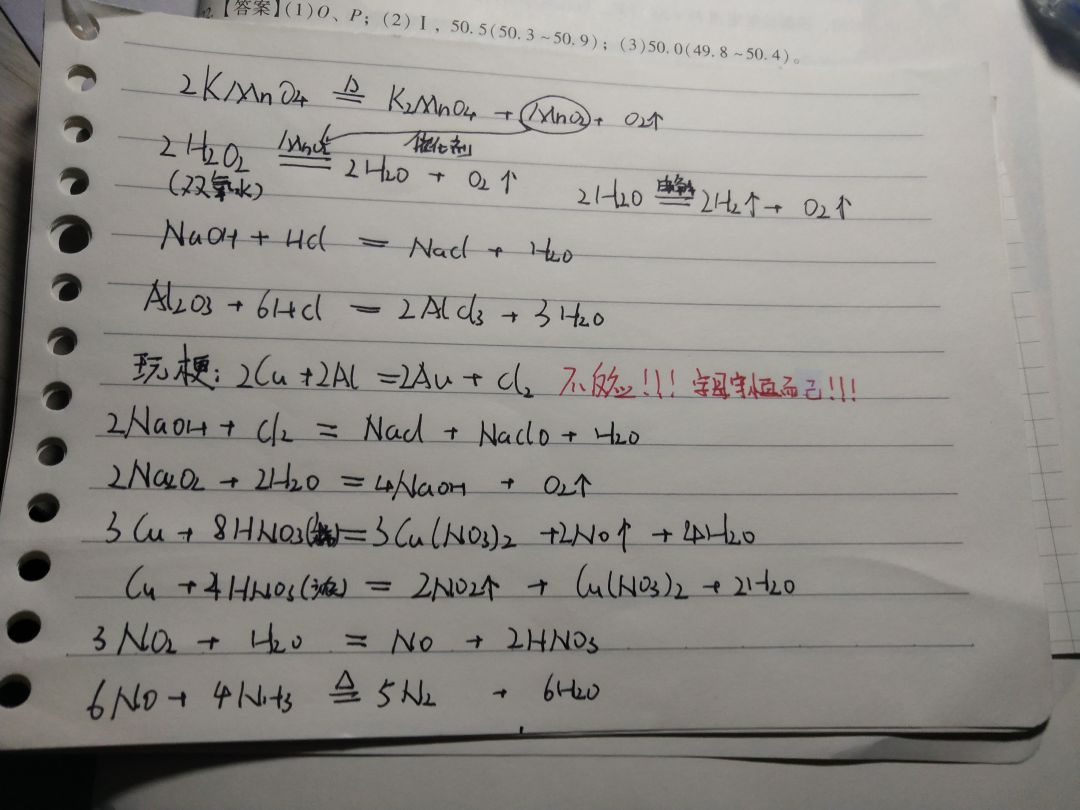 【答案】(1)O、P；(2)Ⅰ，50.5(50.3~50.9)；(3)50.0(49.8~50.4)。
2KMnO4 △= K2MnO4 + MnO2 + O2↑
2H2O2 MnO2= 2H2O + O2↑ 催化剂
(双氧水)
2H2O 电解= 2H2↑ + O2↑
NaOH + HCl = NaCl + H2O
Al2O3 + 6HCl = 2AlCl3 + 3H2O
玩梗：2Cu + 2Al = 2Au + Cl2 不反应!!! 字母守恒而已!!!
2NaOH + Cl2 = NaCl + NaClO + H2O
2Na2O2 + 2H2O = 4NaOH + O2↑
3Cu + 8HNO3(稀) = 3Cu(NO3)2 + 2NO↑ + 4H2O
Cu + 4HNO3(浓) = 2NO2↑ + Cu(NO3)2 + 2H2O
3NO2 + H2O = NO + 2HNO3
6NO + 4NH3 △= 5N2 + 6H2O